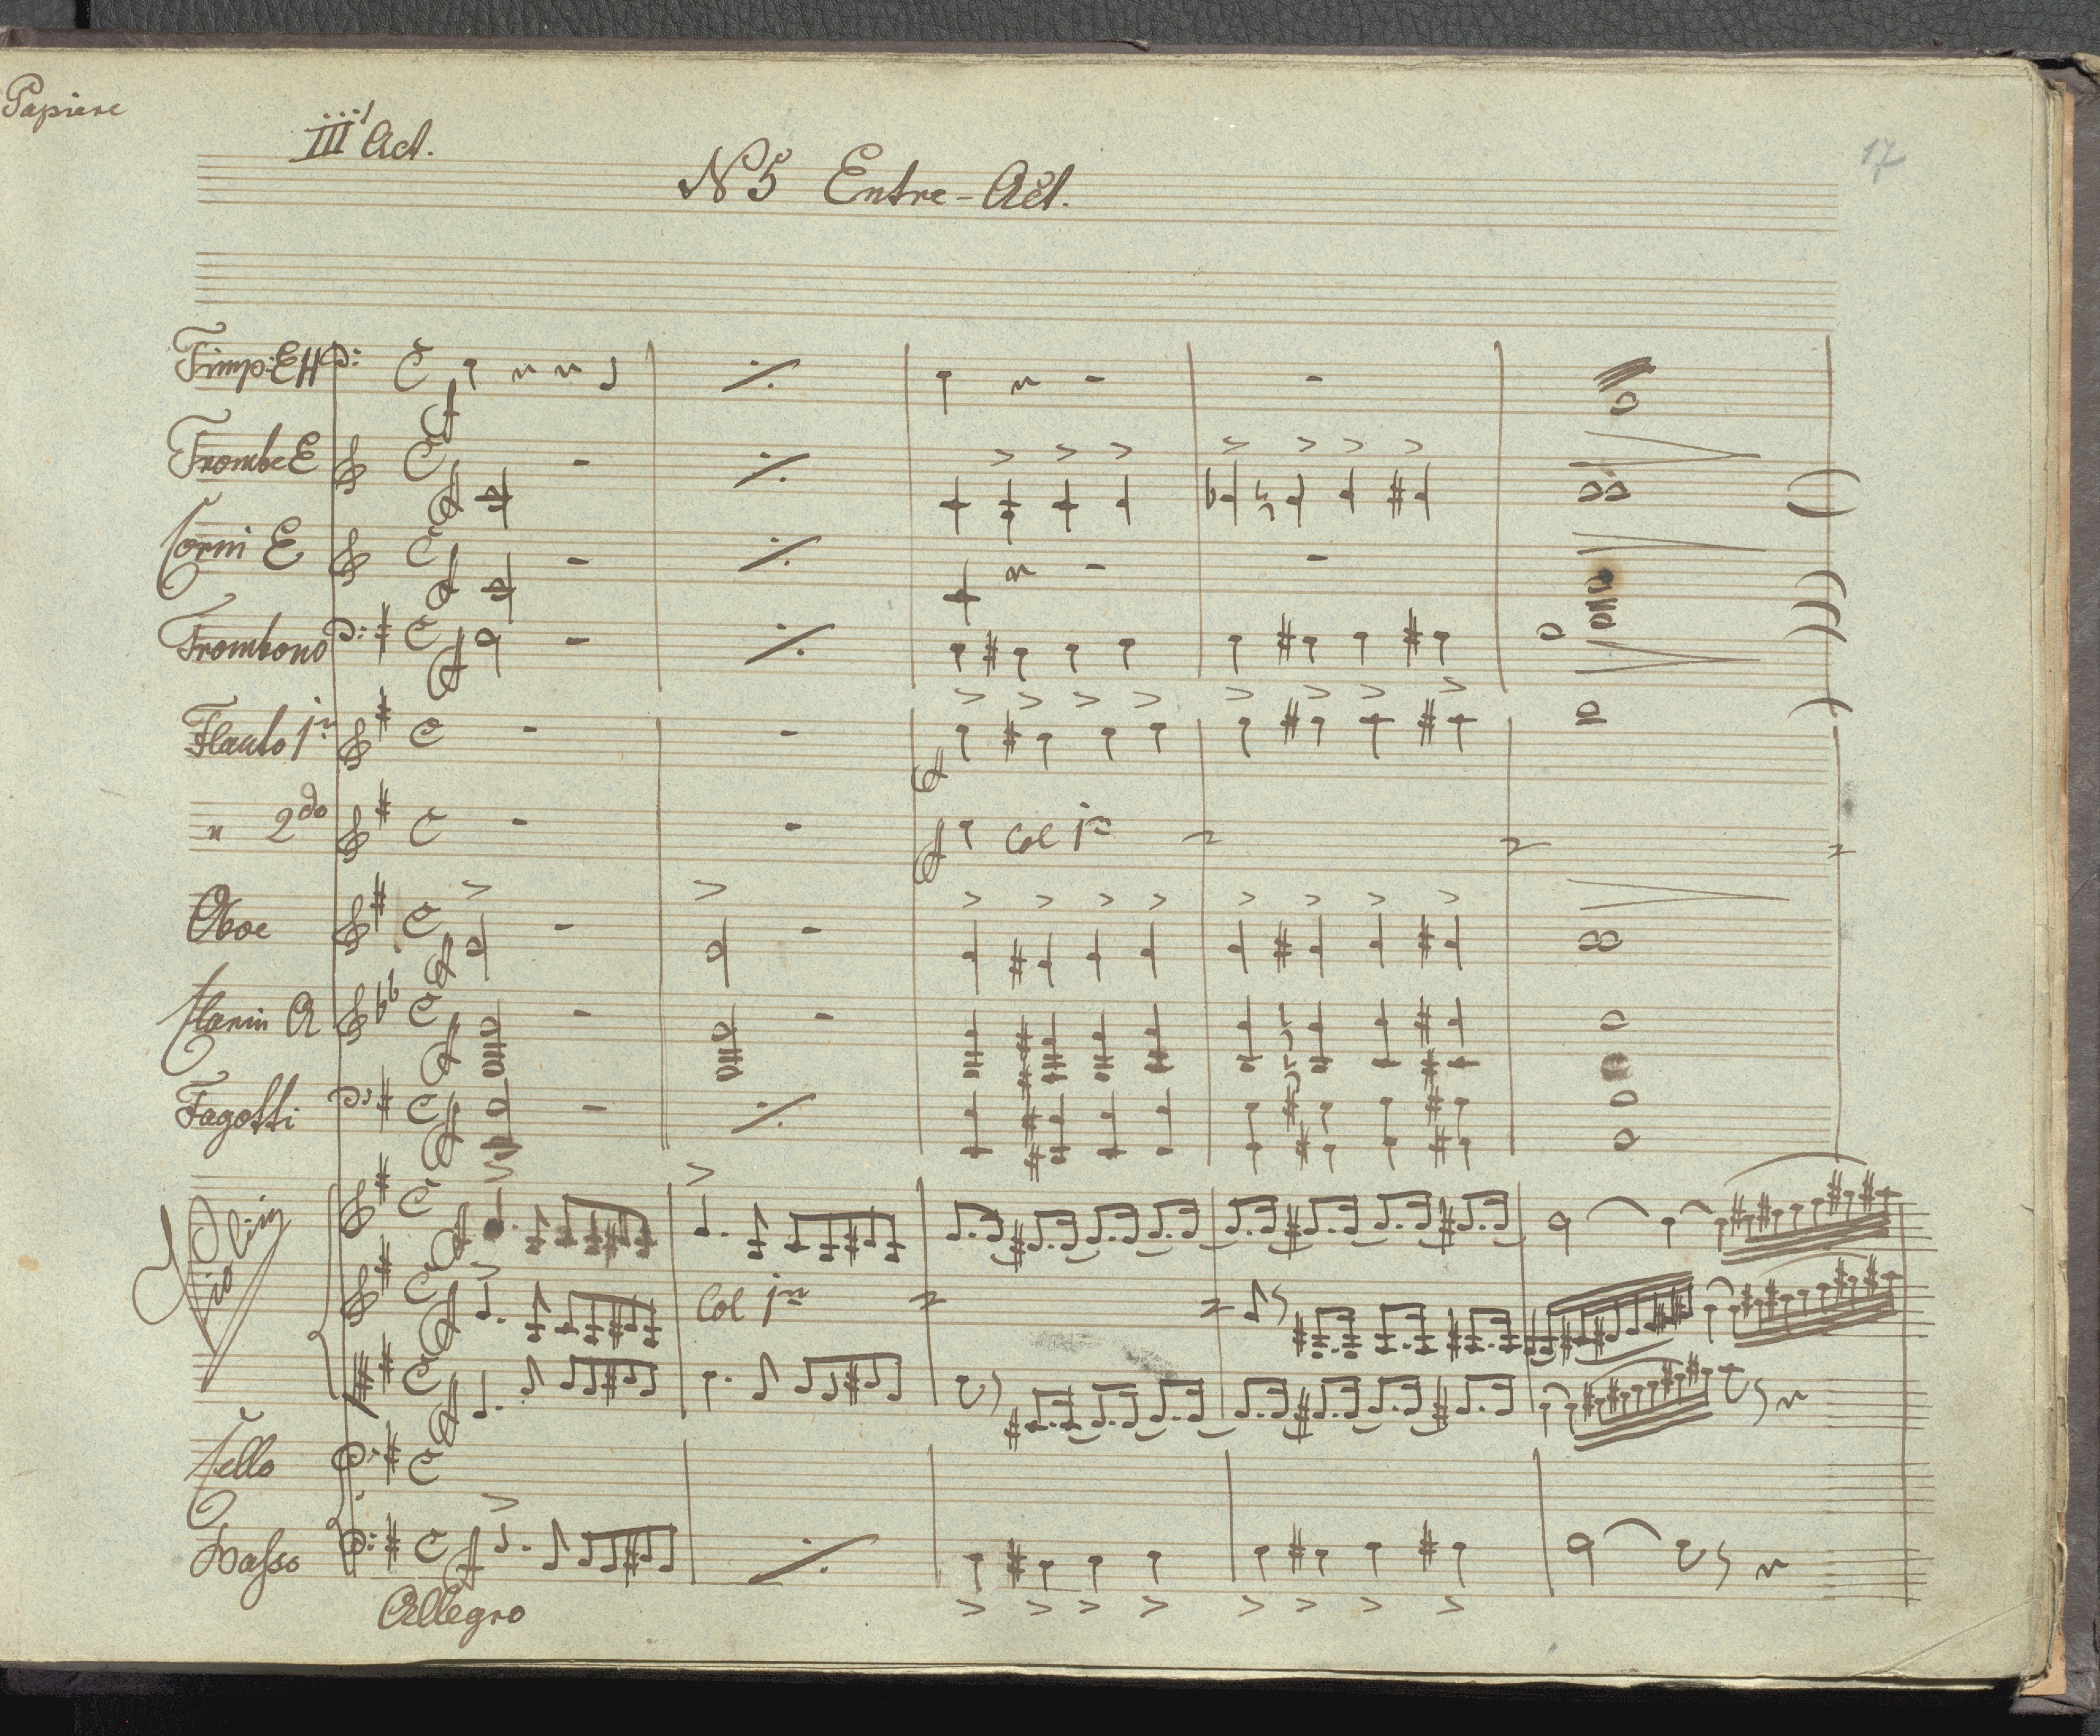 Papiere
III Act.
17
N 5 Entre-Act.
Timp: E H
Trombe E
Corni E
Trombono
Flauto 1mo
" 2do
Col 1mo
Oboe
Clarin A
Fagotti
Violin
Col 1mo
Cello
Basso
Allegro